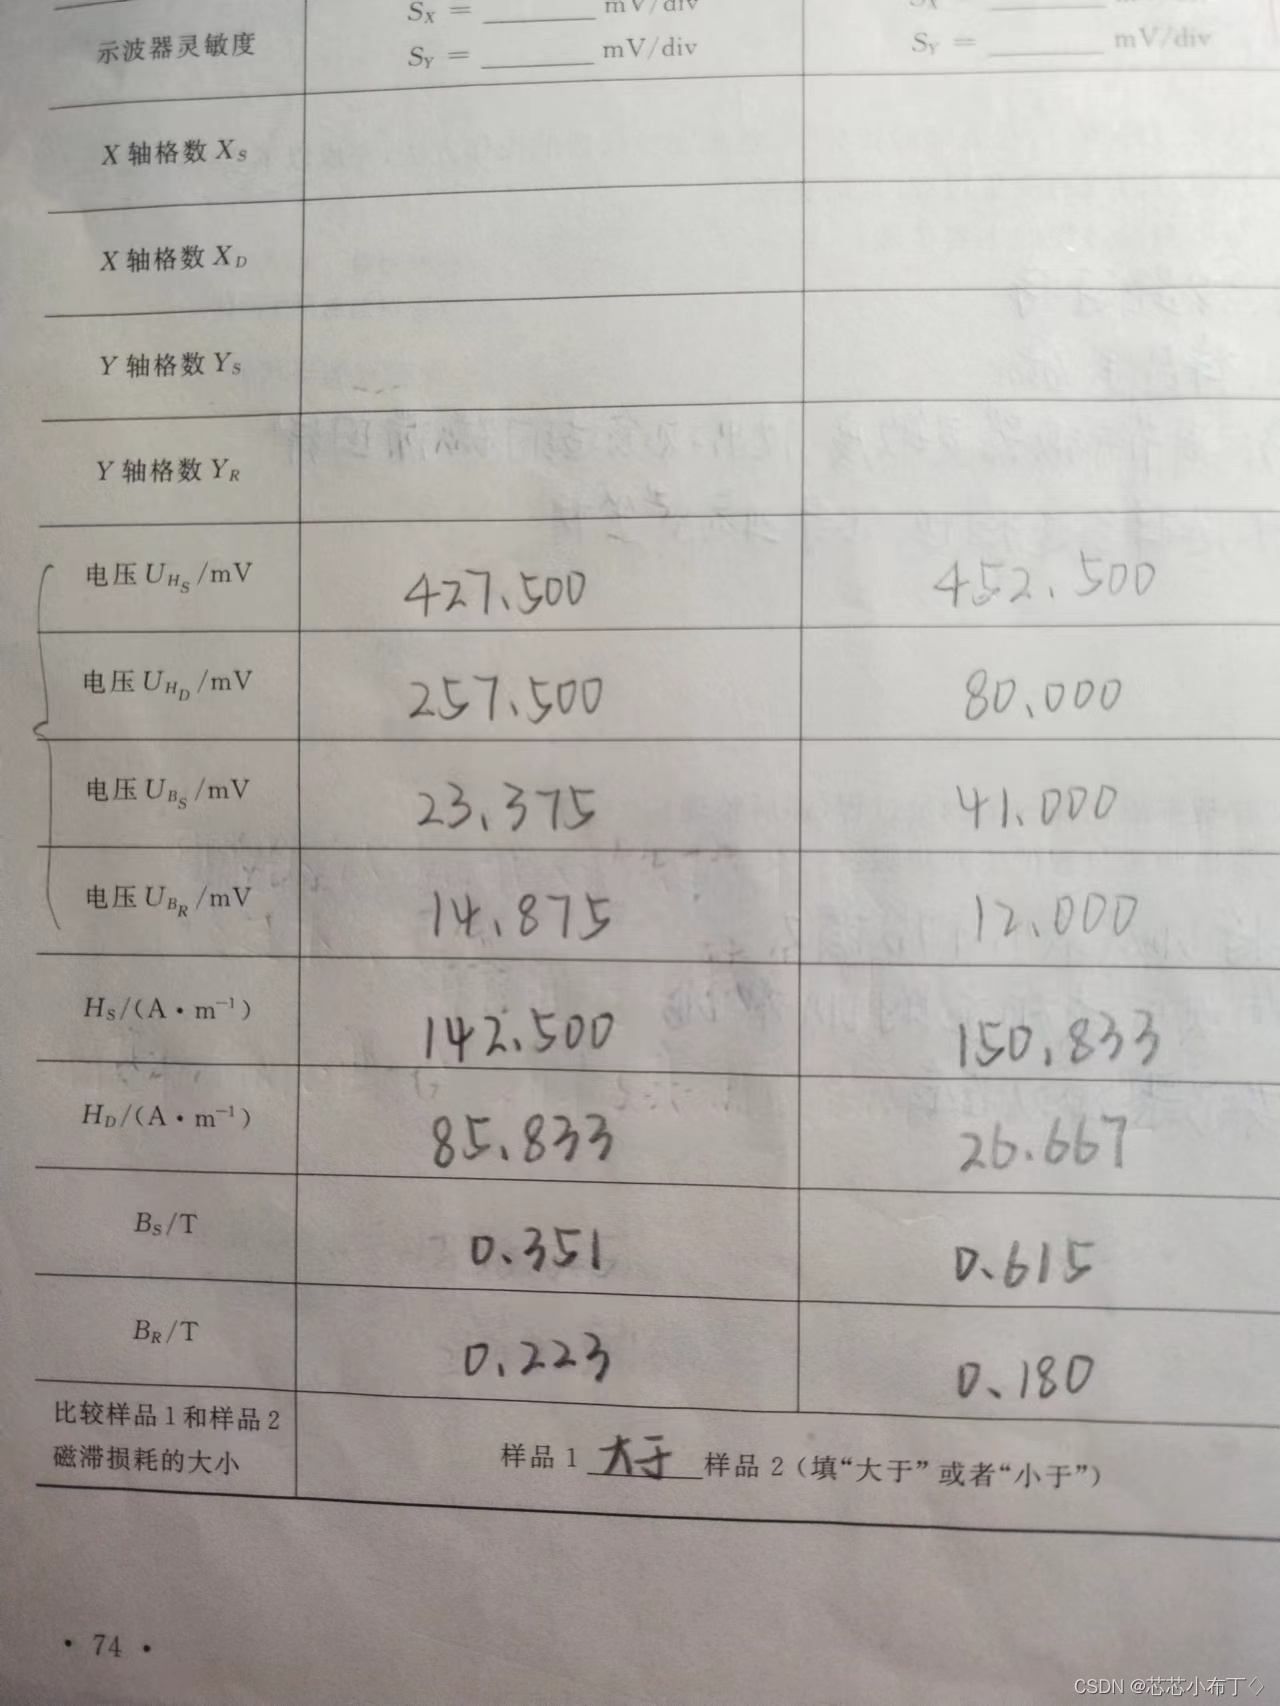 S_X = ______ mV/div S_X = ______ mV/div
示波器灵敏度
S_Y = ______ mV/div S_Y = ______ mV/div
X 轴格数 X_S
X 轴格数 X_D
Y 轴格数 Y_S
Y 轴格数 Y_R
电压 U_{H_S}/mV 427.500 452.500
电压 U_{H_D}/mV 257.500 80.000
电压 U_{B_S}/mV 23.375 41.000
电压 U_{B_R}/mV 14.875 12.000
H_S/(A·m⁻¹) 142.500 150.833
H_D/(A·m⁻¹) 85.833 26.667
B_S/T 0.351 0.615
B_R/T 0.223 0.180
比较样品1和样品2
磁滞损耗的大小
样品1 大于 样品2(填“大于”或者“小于”)
· 74 ·
CSDN @芯芯小布丁◇